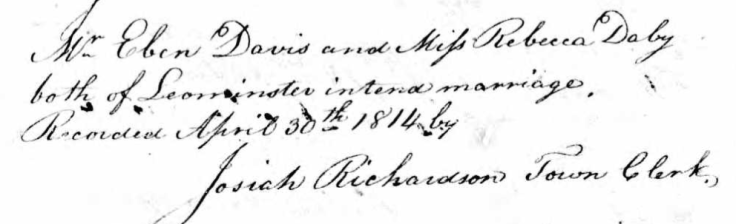 Mr Eben Davis and Miss Rebecca Daby
both of Leominster intend marriage.
Recorded April 30th 1814 by
Josiah Richardson Town Clerk.